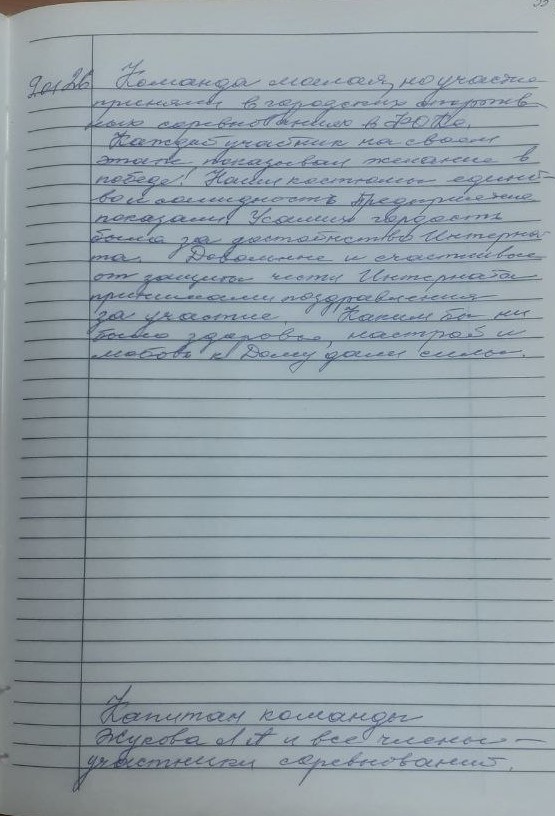 Команда малая, но участие
приняли в городских спортив-
ных соревнованиях в ФОКе.
Каждый участник на своем
этапе показывал желание в
победе! Наши костюмы единст-
вом солидность Предприятие
показали. У самих гордость
была за достоинство Интерна-
та. Довольные и счастливые
от защиты чести Интерната
принимали поздравления
за участие. Каким бы ни
было здоровье, настрой и
любовь к Дому дали силы.
Капитан команды
Жукова Л А и все члены -
участники соревнований.